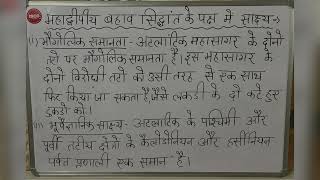 महाद्वीपीय बहाव सिद्धांत के पक्ष में साक्ष्य→
(i) भौगोलिक समानता - अटलांटिक महासागर के दोनों
तटो पर भौगोलिक समानता है। इस महासागर के
दोनो विरोधी तटो को उसी तरह से एक साथ
फिट किया जा सकता है, जैसे लकडी के दो कटे हुए
टुकडो को।
(ii) भूवैज्ञानिक साक्ष्य- अटलांटिक के पश्चिमी और
पूर्वी तटीय क्षेत्रो के कैलोडोनियन और हर्सीनियन
पर्वत प्रणाली एक समान है।